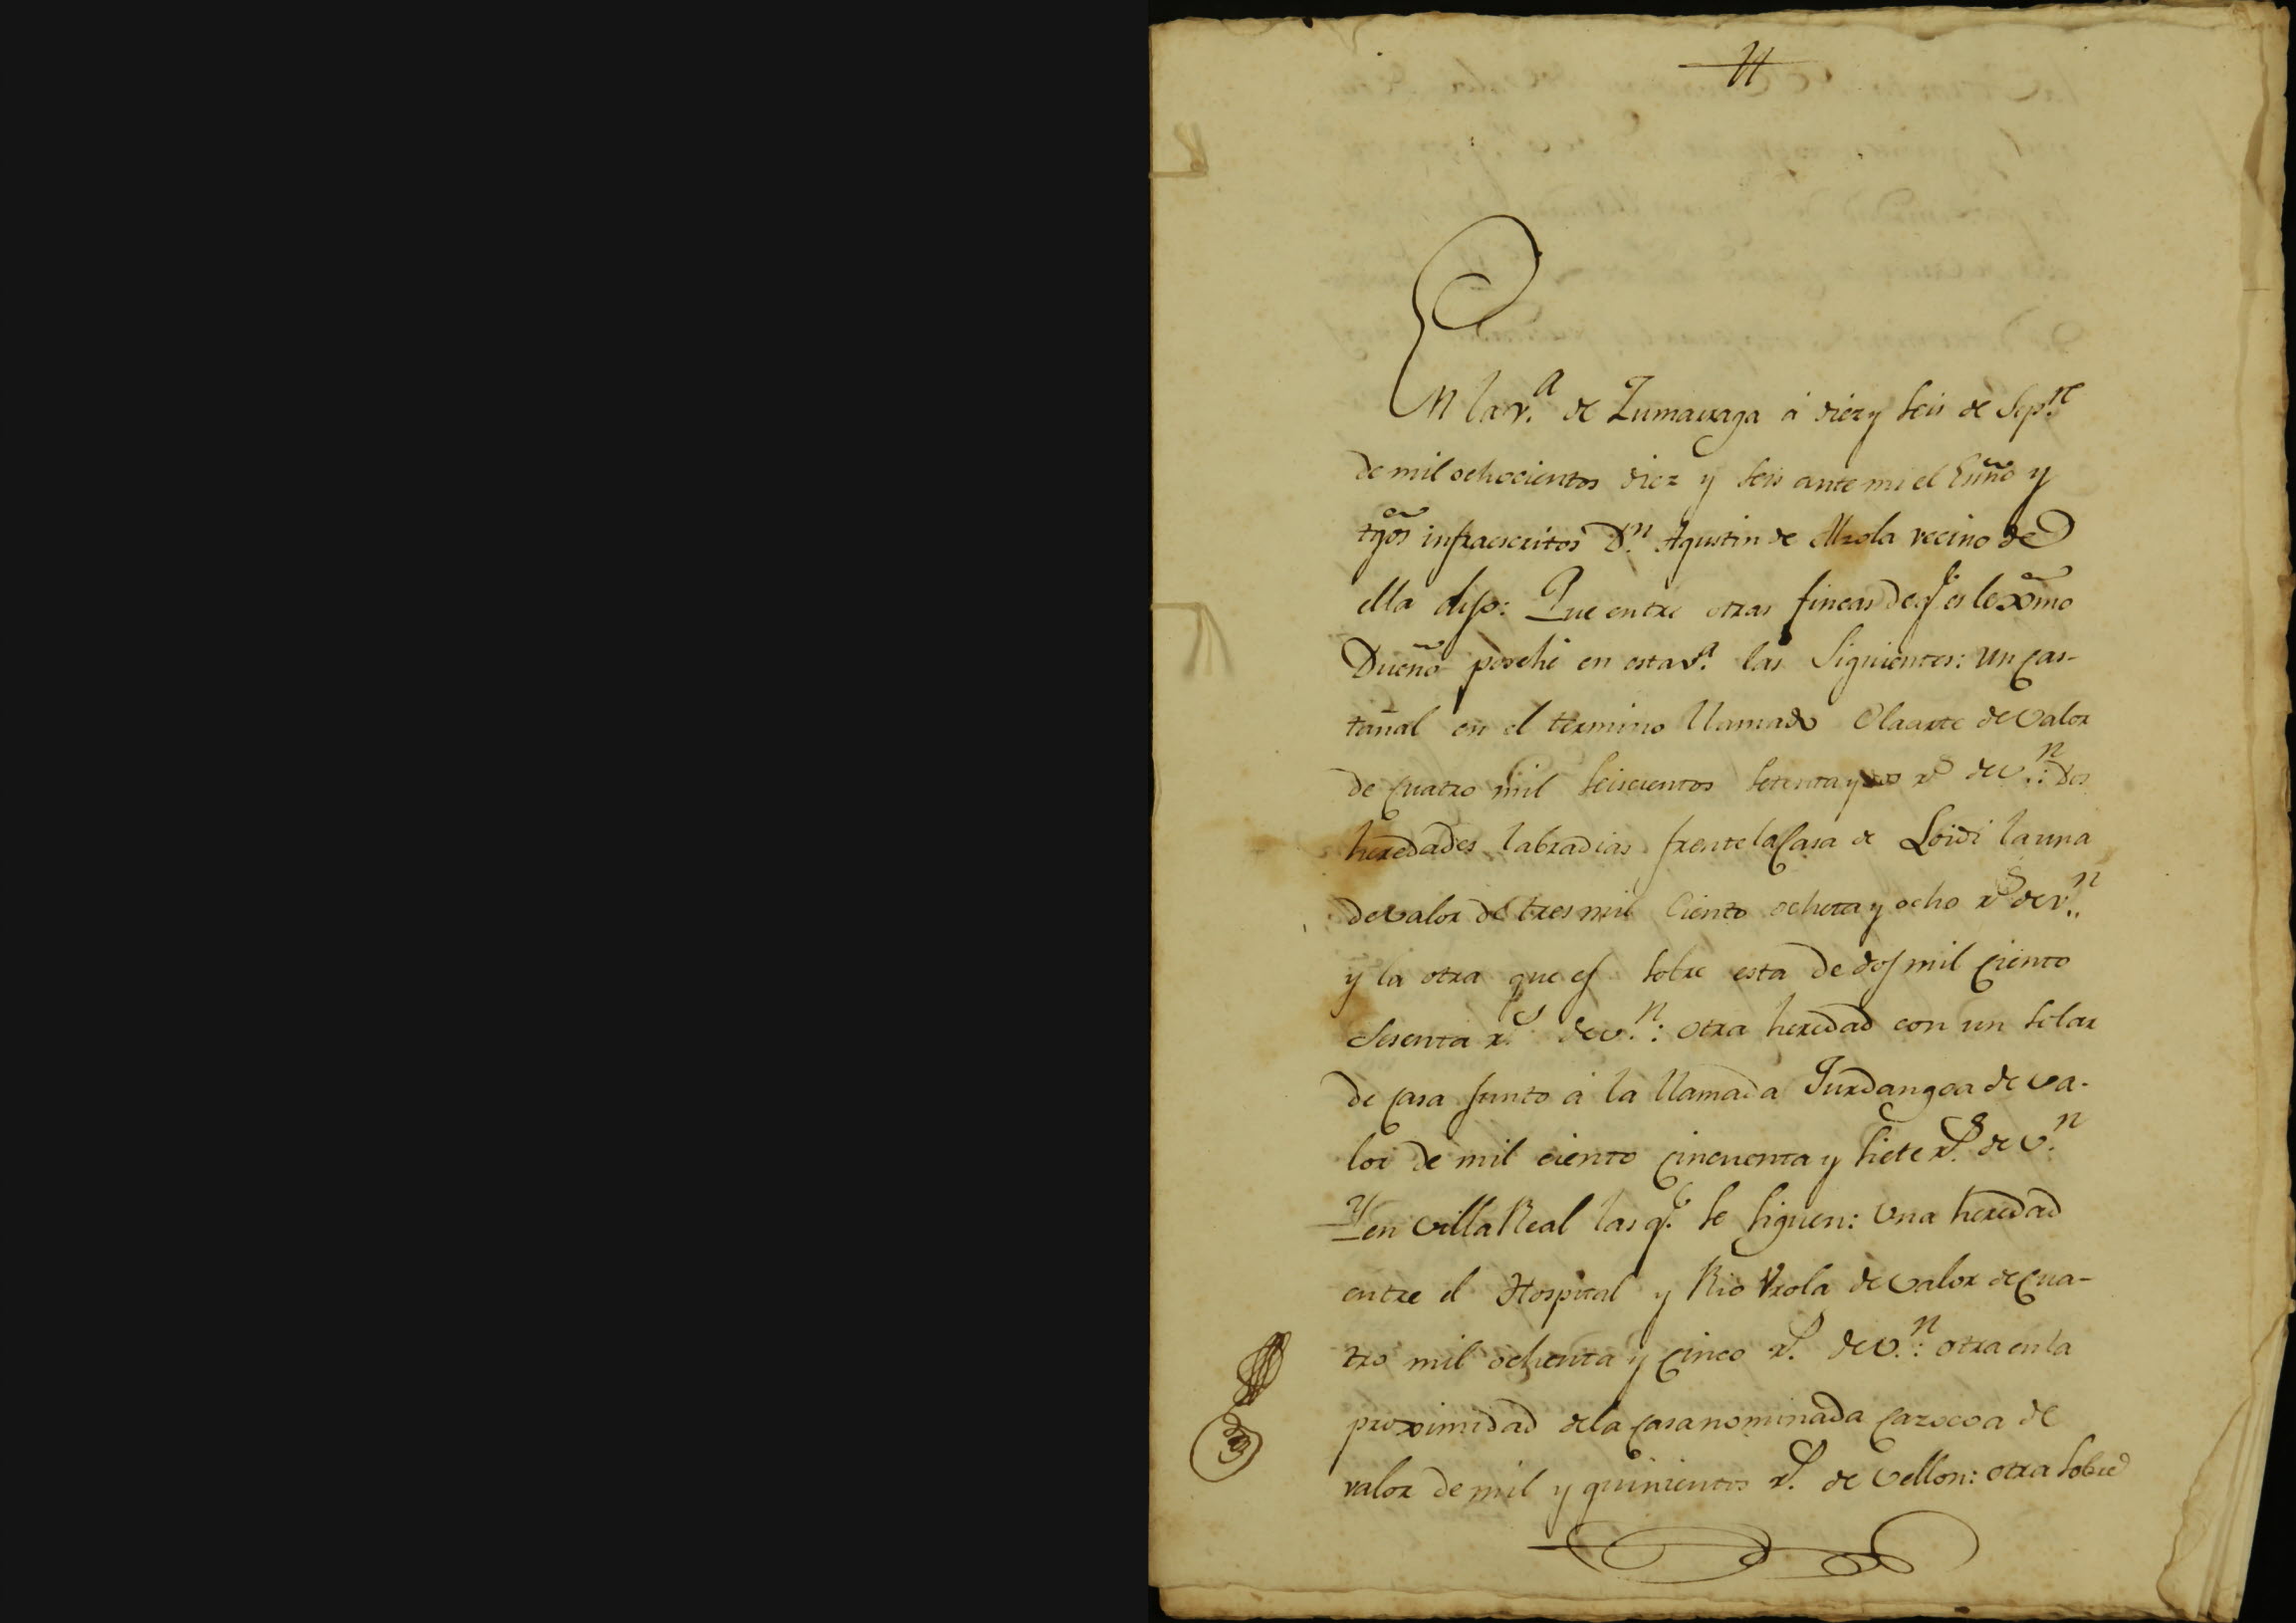 En la v.ª de Zumarraga á diez y seis de Sep.re
de mil ochocientos diez y seis ante mi el Essno y
tgos infraescritos D.n Agustin de Alzola vecino de
ella dijo: Que entre otras fincas de q es lexmo
Dueño poséhe en esta v.ª las siguientes: un cas-
tañal en el termino llamado Olaarte de valor
de quatro mil seiscientos setenta y dos r.s de v.n: dos
heredades labradias frente la casa de Loidi la una
de valor de tres mil ciento ocheta y ocho r.s de v.n
y la otra que es sobre esta de dos mil ciento
sesenta r.s de v.n: otra heredad con un solar
de casa junto á la llamada Jurdangoa de va-
lor de mil ciento cincuenta y siete r.s de v.n
Y en Villa Real las q.e se siguen: una heredad
entre el Hospital y Rio Vrola de valor de cua-
tro mil ochenta y cinco r.s de v.n: otra en la
proximidad de la casa nominada Cazocoa de
valor de mil y quinientos r.s de vellon: otra sobre